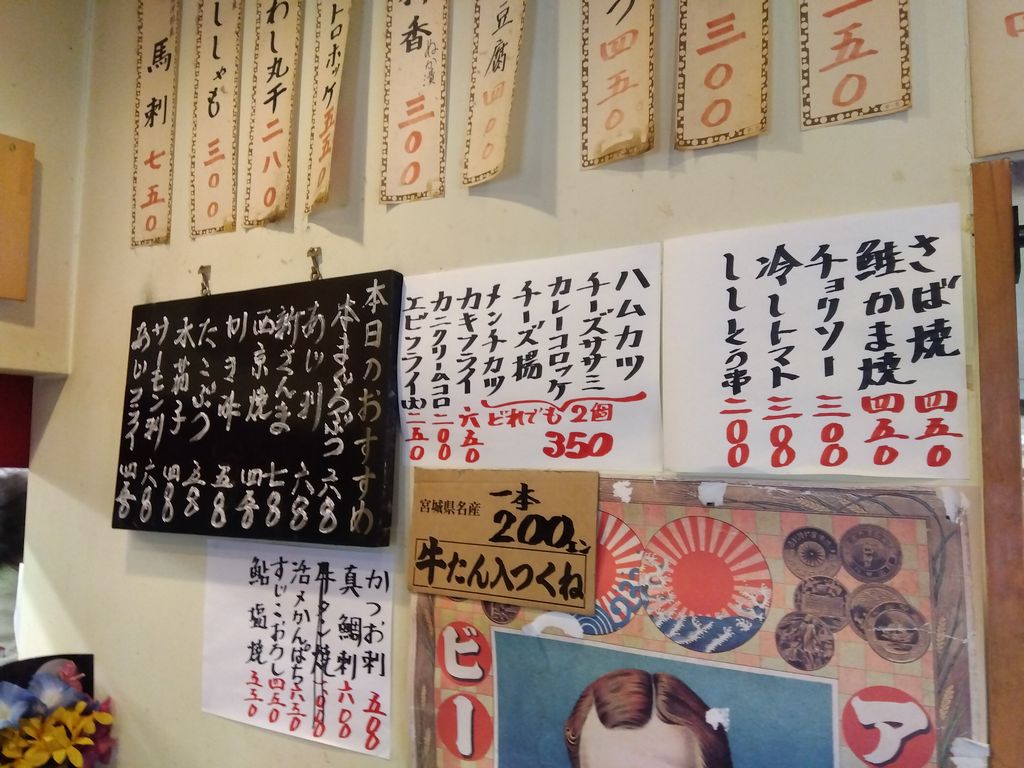 一五〇
三〇〇
四五〇
豆腐 四〇〇
香 ぬか漬 三〇〇
トロホッケ 五五〇
わし丸干 二八〇
ししゃも 三〇〇
馬刺 七五〇
さば焼 四五〇
鮭かま焼 四五〇
チョクソー 三〇〇
冷しトマト 三〇〇
ししとう串 二〇〇
ハムカツ
チーズササミ
カレーコロッケ
チーズ揚
メンチカツ
どれでも2個
350
カキフライ 六五〇
カニクリームコロ 二〇〇
エビフライ(大) 二五〇
本日のおすすめ
本まぐろぶつ 六〇〇
あじ刺 六〇〇
新さんま 七〇〇
西京焼
かき酢 五〇〇
たこぶつ 五〇〇
水茄子 四〇〇
サーモン刺 六〇〇
あじフライ
宮城県名産
一本
200エン
牛たん入つくね
かつお刺 五〇〇
真鯛刺 六〇〇
活〆かんぱち 六五〇
すじこおろし 四五〇
鮎塩焼 五五〇
ビー
ア